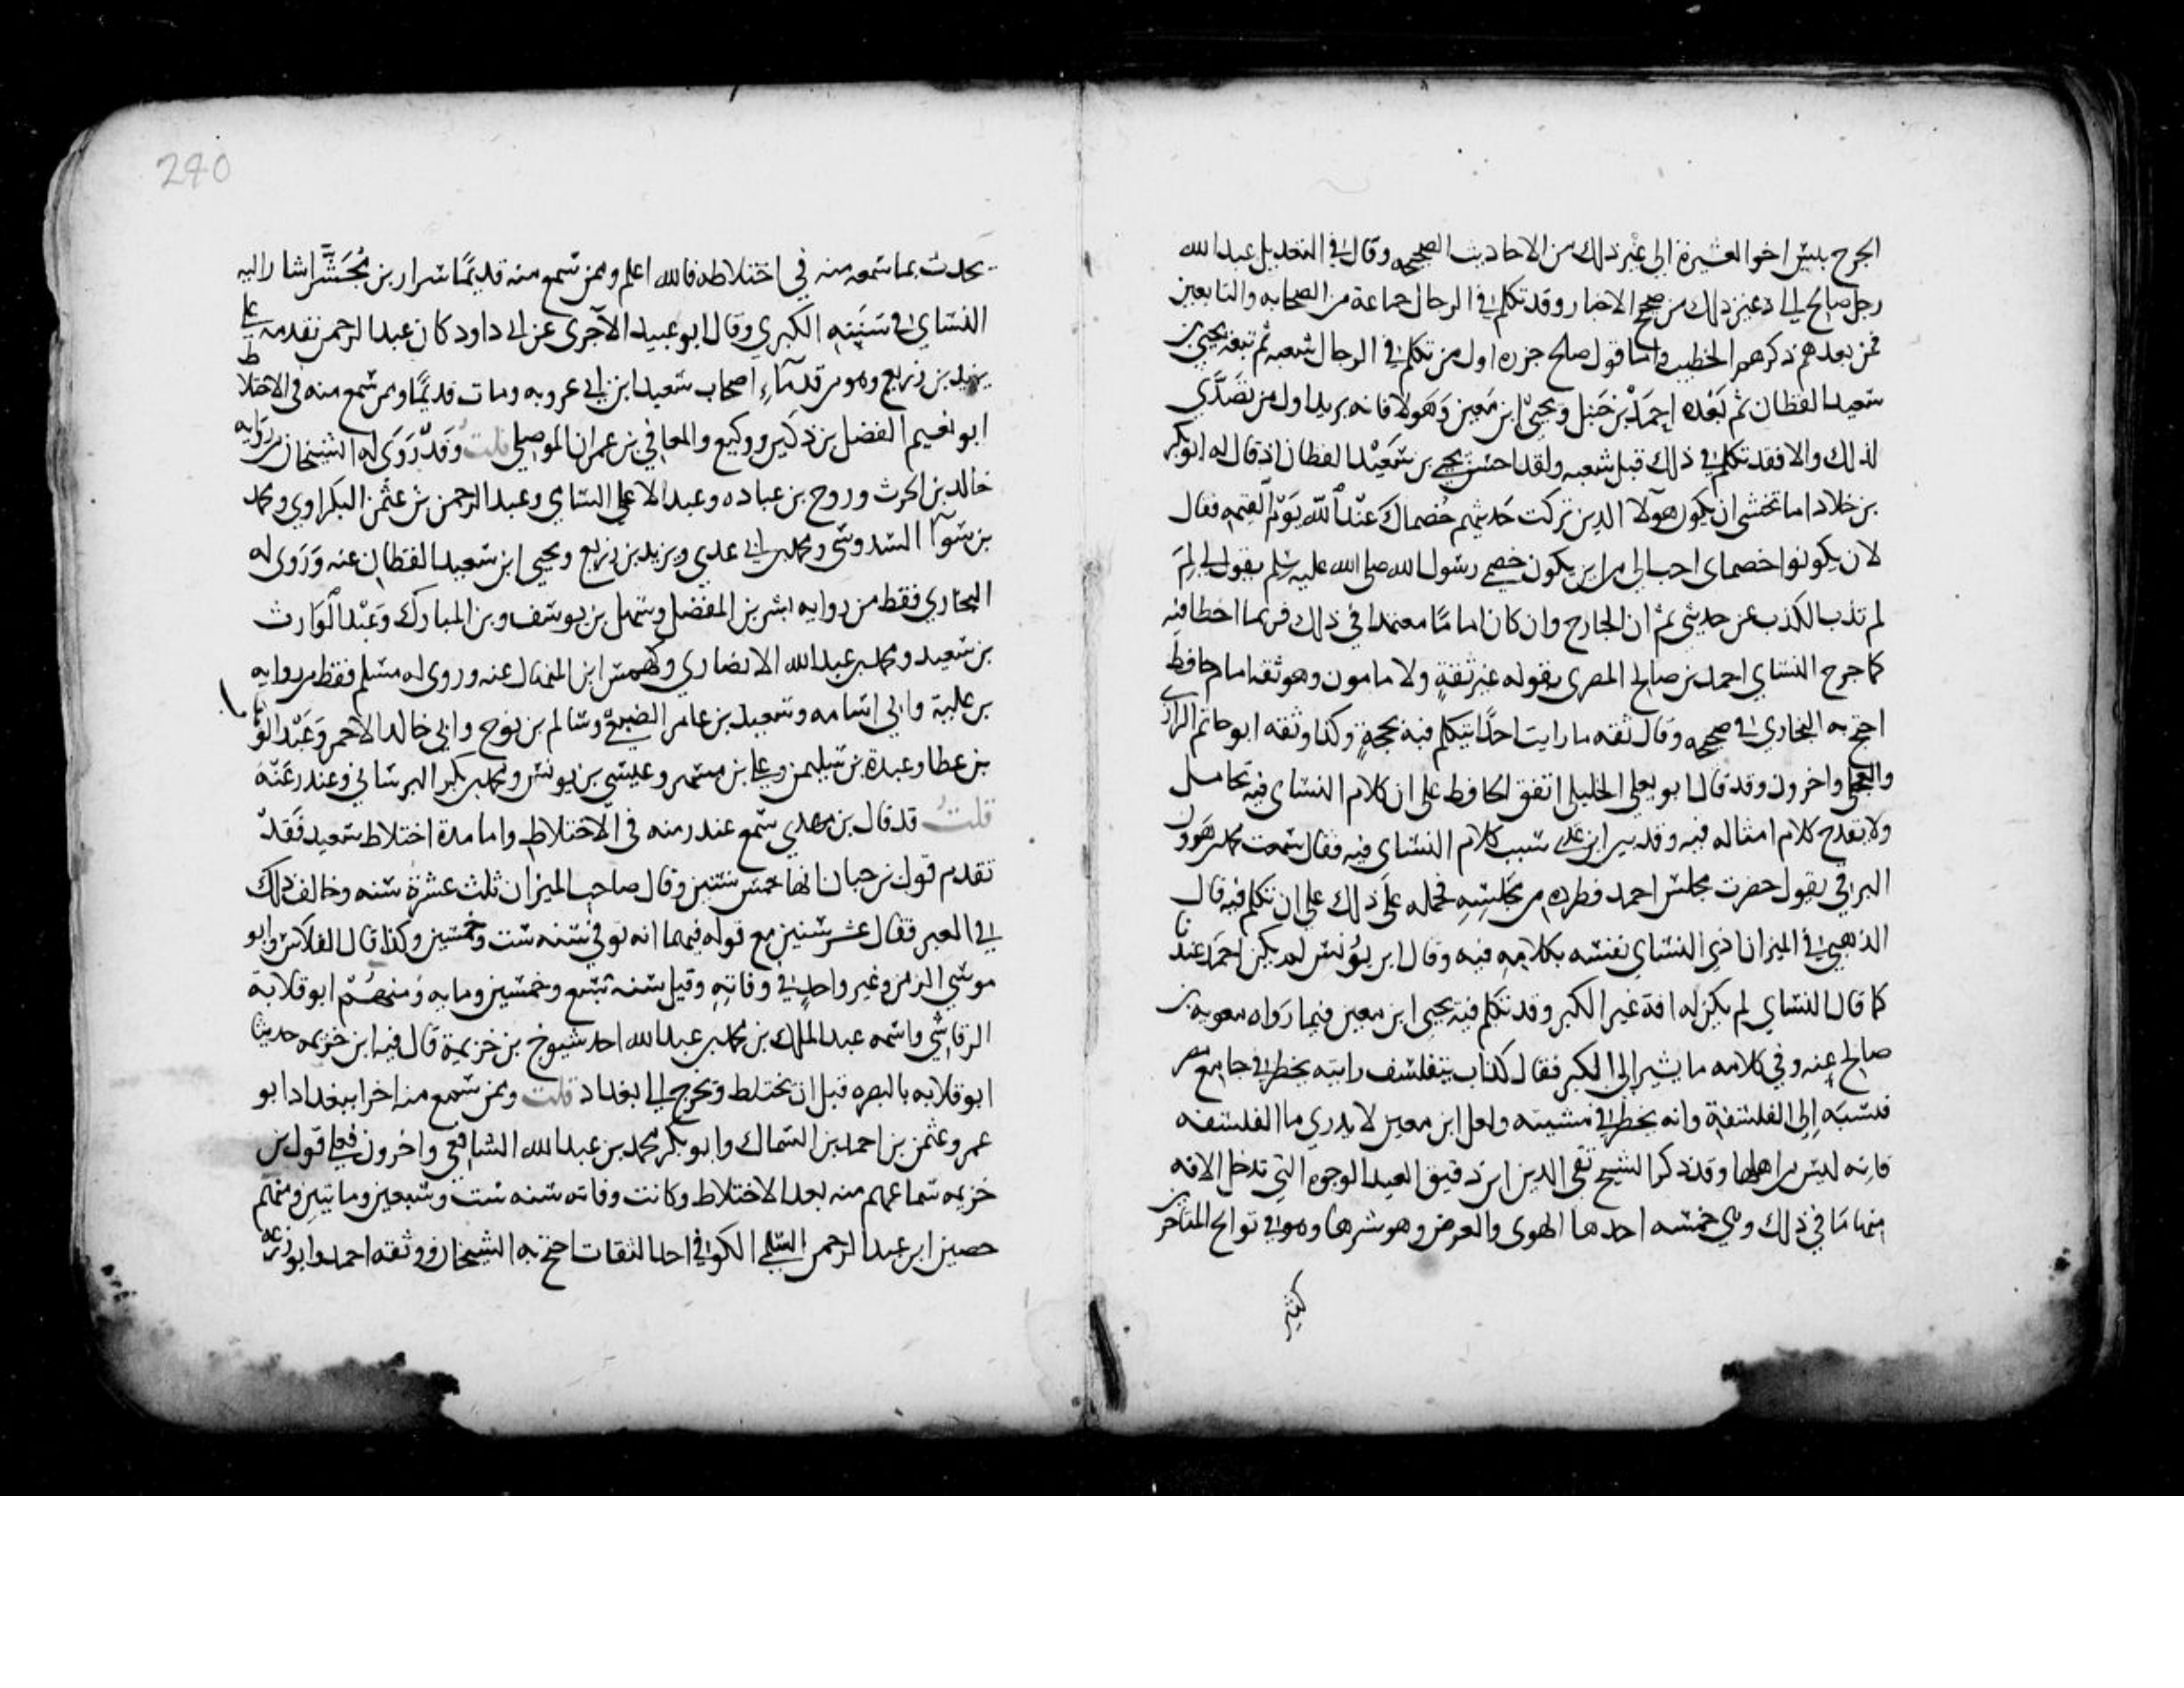 الجرح بيس اخو العشيرة الى غير ذلك من الاحاديث الصحيحه وقال في التعديل عبدالله
رجل صالح الى غير ذلك من صحيح الاخبار وقد تكلم في الرجال جماعة من الصحابه والتابعين
فمن بعدهم ذكرهم الخطيب واما قول صالح جزره اول من تكلم في الرجال شعبه ثم تبعه يحيى بن
سعيد القطان ثم بعده احمد بن حنبل ويحيى ابن معين وهولا فانه يريد اول من تصدى
لذلك والا فقد تكلم في ذلك قبل شعبه ولقد احسن يحيى بن سعيد القطان اذ قال له ابو بكر
بن خلاد اما تخشى ان يكون هولا الذين تركت حديثهم خصماك عند الله يوم القيمه فقال
لان يكونوا خصماى احب الي من ان يكون خصمي رسول الله صلى الله عليه وسلم يقول لي لم
لم تذب الكذب عن حديثي ثم ان الجارح وان كان اماما معتمدا في ذلك فربما اخطا فيه
كما جرح النساي احمد بن صالح المصرى بقوله غير ثقة ولا مامون وهو ثقه امام حافظ
احتج به البخاري في صحيحه وقال ثقه ما رايت احدا يتكلم فيه بحجة وكذا وثقه ابو حاتم الرازي
والعجلى واخرون وقد قال ابو يعلى الخليلى اتفق الحافظ على ان كلام النساى فيه تحامل
ولا يقدح كلام امثاله فيه وقد بين ابن عدي سبب كلام النساى فيه فقال سمعت محمد بن هرون
البرقي يقول حضرت مجلس احمد فطرده من مجلسه فحمله على ذلك على ان تكلم فيه قال
الذهبي في الميزان اذى النساى نفسه بكلامه فيه وقال ابن يونس لم يكن احمد عندنا
كما قال النساي لم يكن له افة غير الكبر وقد تكلم فيه يحيى ابن معين فيما رواه معويه بن
صالح عنه وفي كلامه ما يشير الى الكبر فقال كذاب يتفلسف رايته يخطر في جامع مصر
فنسبه الى الفلسفة وانه يخطر في مشيته ولعل ابن معين لا يدري ما الفلسفه
فانه ليس من اهلها وقد ذكر الشيخ تقى الدين ابن دقيق العيد الوجوه التي تدخل الافه
منها في ذلك وهي خمسه احدها الهوى والغرض وهو شرها وهو في تواريخ المتاخرين
كثير
280
يحدث بما سمعه منه في اختلاطه فالله اعلم وممن سمع منه قديما سرار بن مجشر اشار اليه
النساى في سننه الكبرى وقال ابو عبيد الآجرى عن ابي داود كان عبد الرحمن تقدمه على
يزيد بن زريع وهو من قدمآء اصحاب سعيد ابن ابي عروبه ومات قديما وممن سمع منه في الاختلاط
ابو نعيم الفضل بن دكين ووكيع والمعافي بن عمران الموصلي قلت وقد روى له الشيخان من روايه
خالد بن الحرث وروح بن عباده وعبد الاعلى السامي وعبد الرحمن بن عثمن البكراوي ومحمد
بن سوآ السدوسي ومحمد بن ابي عدي ويزيد بن زريع ويحيى ابن سعيد القطان عنه وروى له
البخاري فقط من روايه بشر بن المفضل وسهل بن يوسف وبن المبارك وعبد الوارث
بن سعيد ومحمد بن عبد الله الانصاري وكهمس ابن المنهال عنه وروى له مسلم فقط من روايه
بن علية وابي اسامه وسعيد بن عامر الضبعي وسالم بن نوح وابي خالد الاحمر وعبد الوهاب
بن عطا وعبدة بن سليمن وعلي بن مسهر وعيسى بن يونس ومحمد بن بكر البرساني وغندر عنه
قلت قد قال بن مهدي سمع غندر منه في الاختلاط واما مدة اختلاط سعيد فقد
تقدم قول بن حبان انها خمس سنين وقال صاحب الميزان ثلث عشرة سنه وخالف ذلك
في العبر فقال عشر سنين مع قوله فيهما انه توفي سنه ست وخمسين وكذا قال الفلاس وابو
موسى الزمن وغير واحد في وفاته وقيل سنه سبع وخمسين ومايه ومنهم ابو قلابة
الرقاشي واسمه عبد الملك بن محمد بن عبد الله احد شيوخ بن خزيمة قال فيه ابن خزيمه حدثنا
ابو قلابه بالبصره قبل ان يختلط ويخرج الى بغداد قلت وممن سمع منه اخرا ببغداد ابو
عمرو عثمن بن احمد بن السماك وابو بكر محمد بن عبد الله الشافعي واخرون فعلى قول بن
خزيمه سماعهم منه بعد الاختلاط وكانت وفاته سنه ست وسبعين وماتين ومنهم
حصين ابن عبد الرحمن السلمي الكوفي احد الثقات احتج به الشيخان ووثقه احمد وابو زرعه